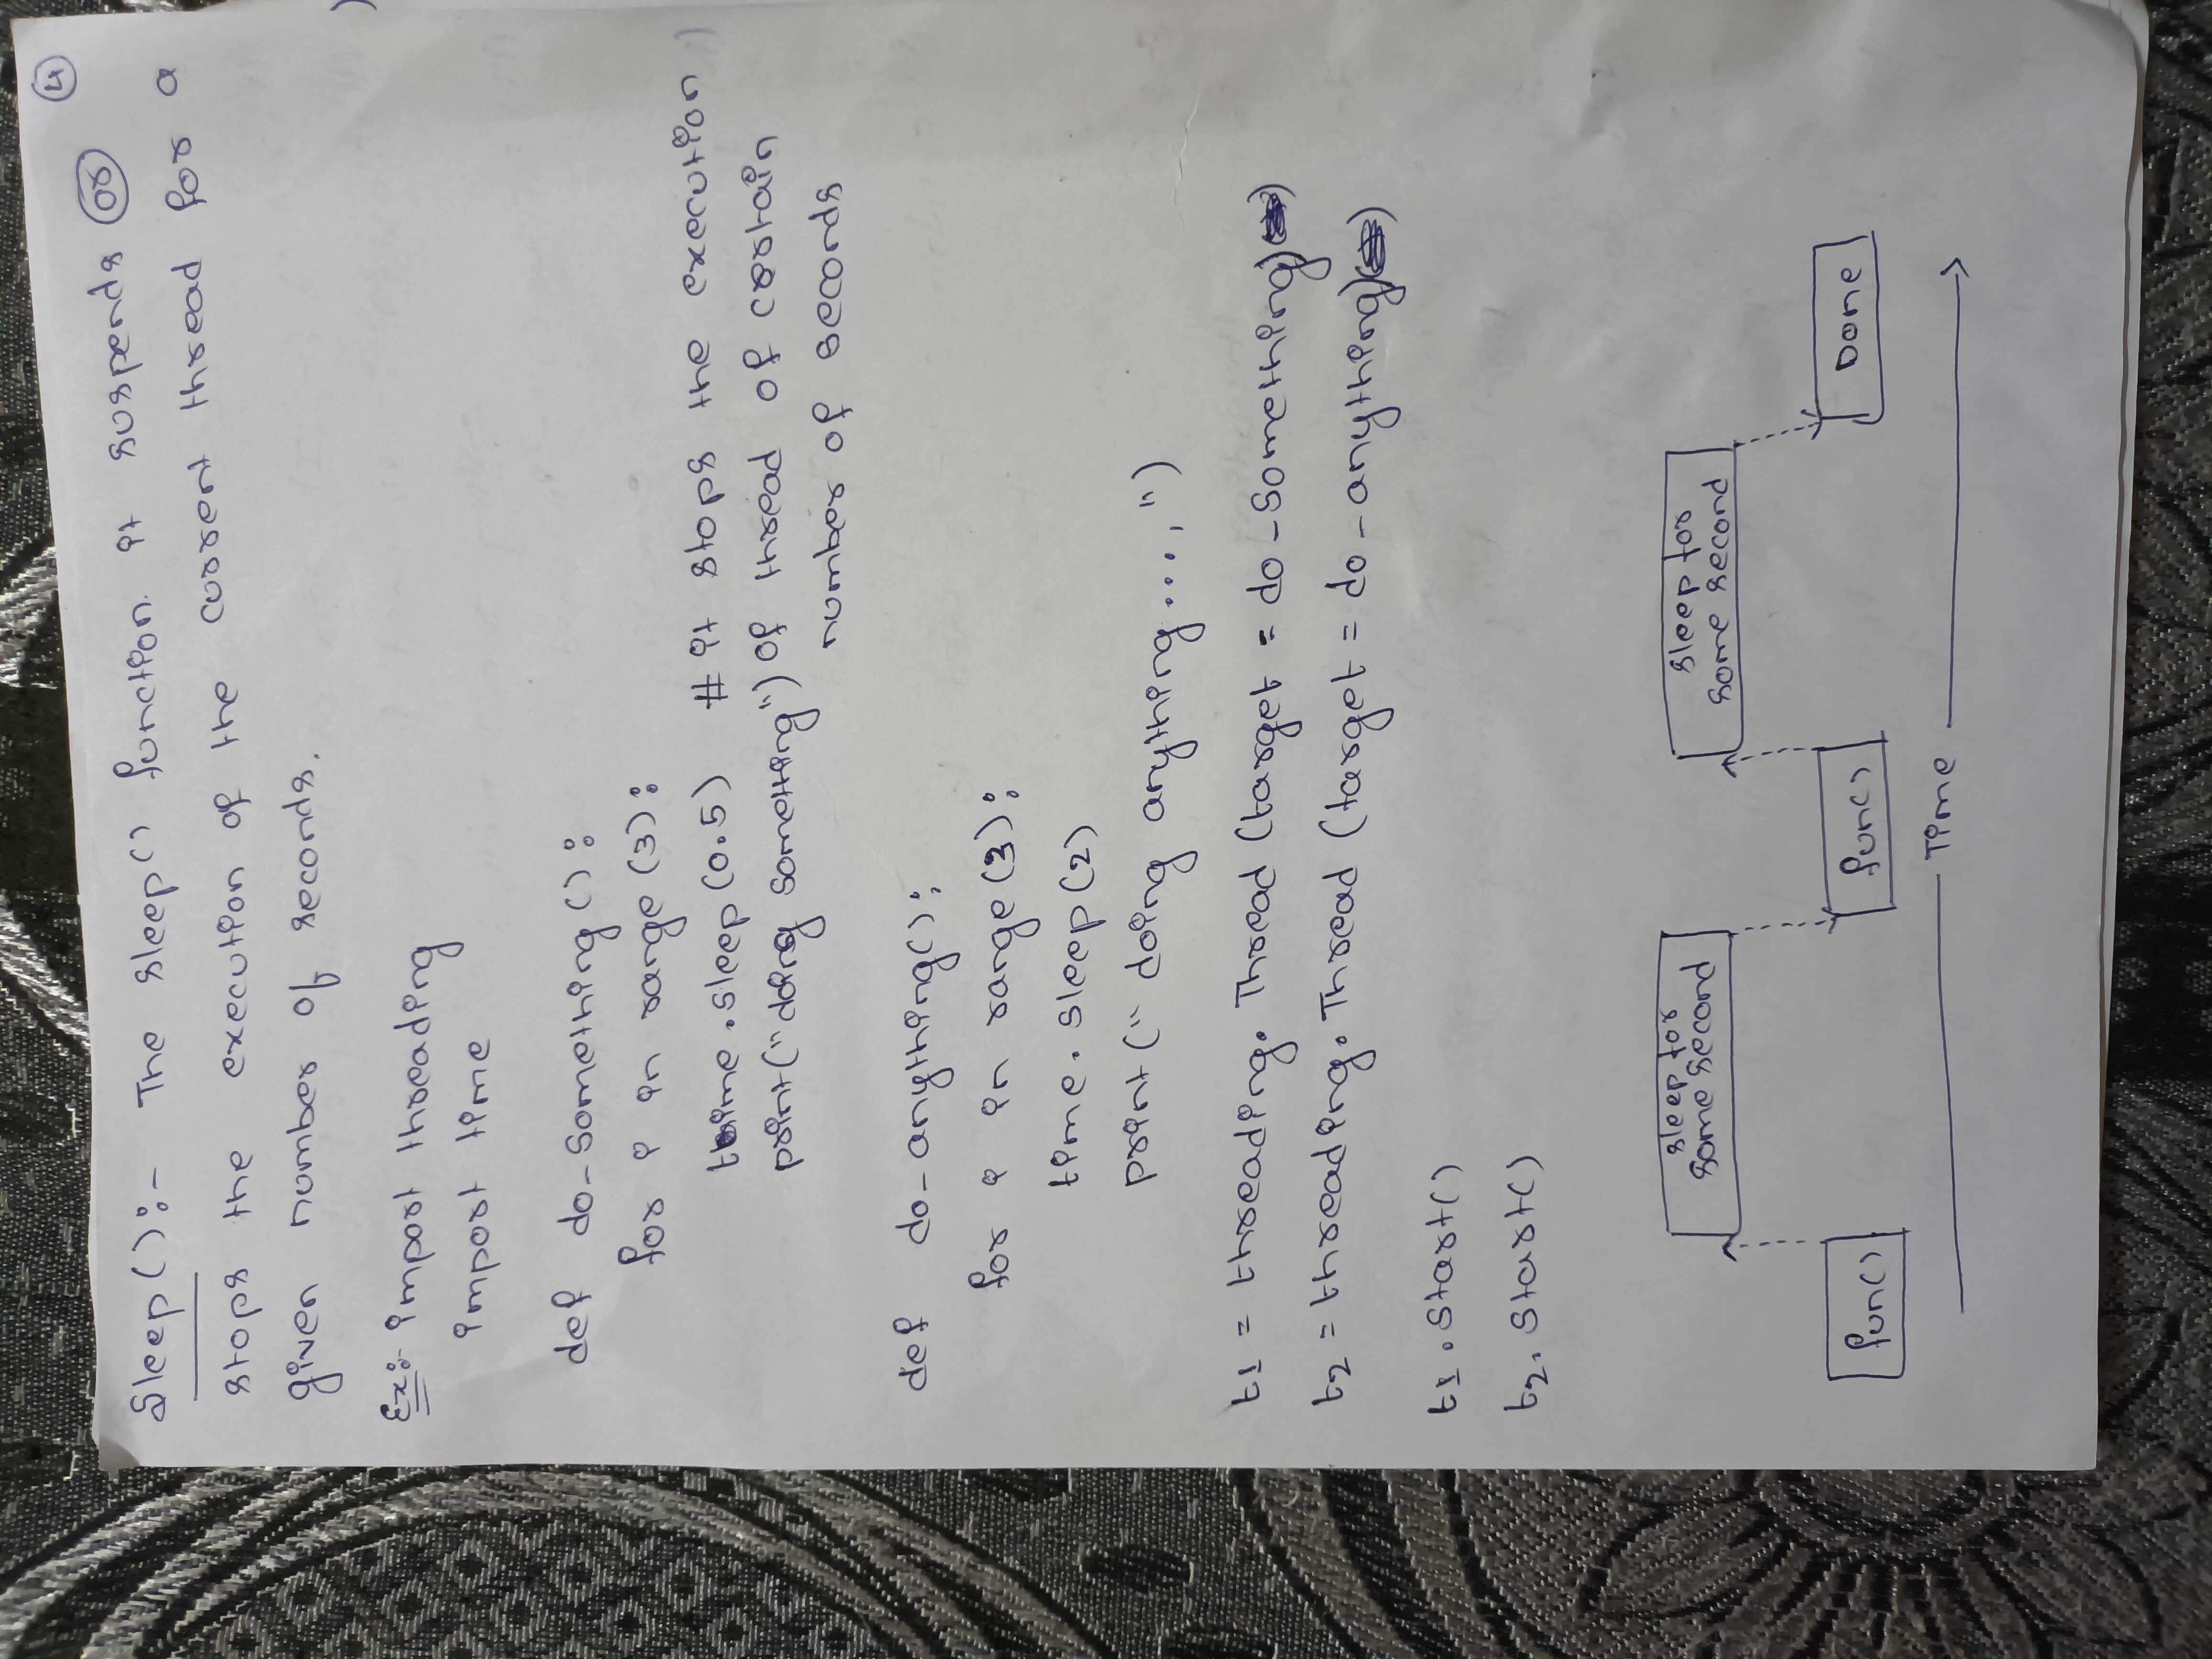 4
Sleep():- The sleep() function. it suspends or
stops the execution of the current thread for a
given number of seconds.
Ex:- import threading
import time
def do_something():
for i in range(3):
time.sleep(0.5) # it stops the execution
print("doing something") of thread of certain
number of seconds
def do_anything():
for i in range(3):
time.sleep(2)
print("doing anything...,")
t1 = threading.Thread(target = do_something)
t2 = threading.Thread(target = do_anything)
t1.start()
t2.start()
sleep for
some second
sleep for
some second
fun()
fun()
Done
Time